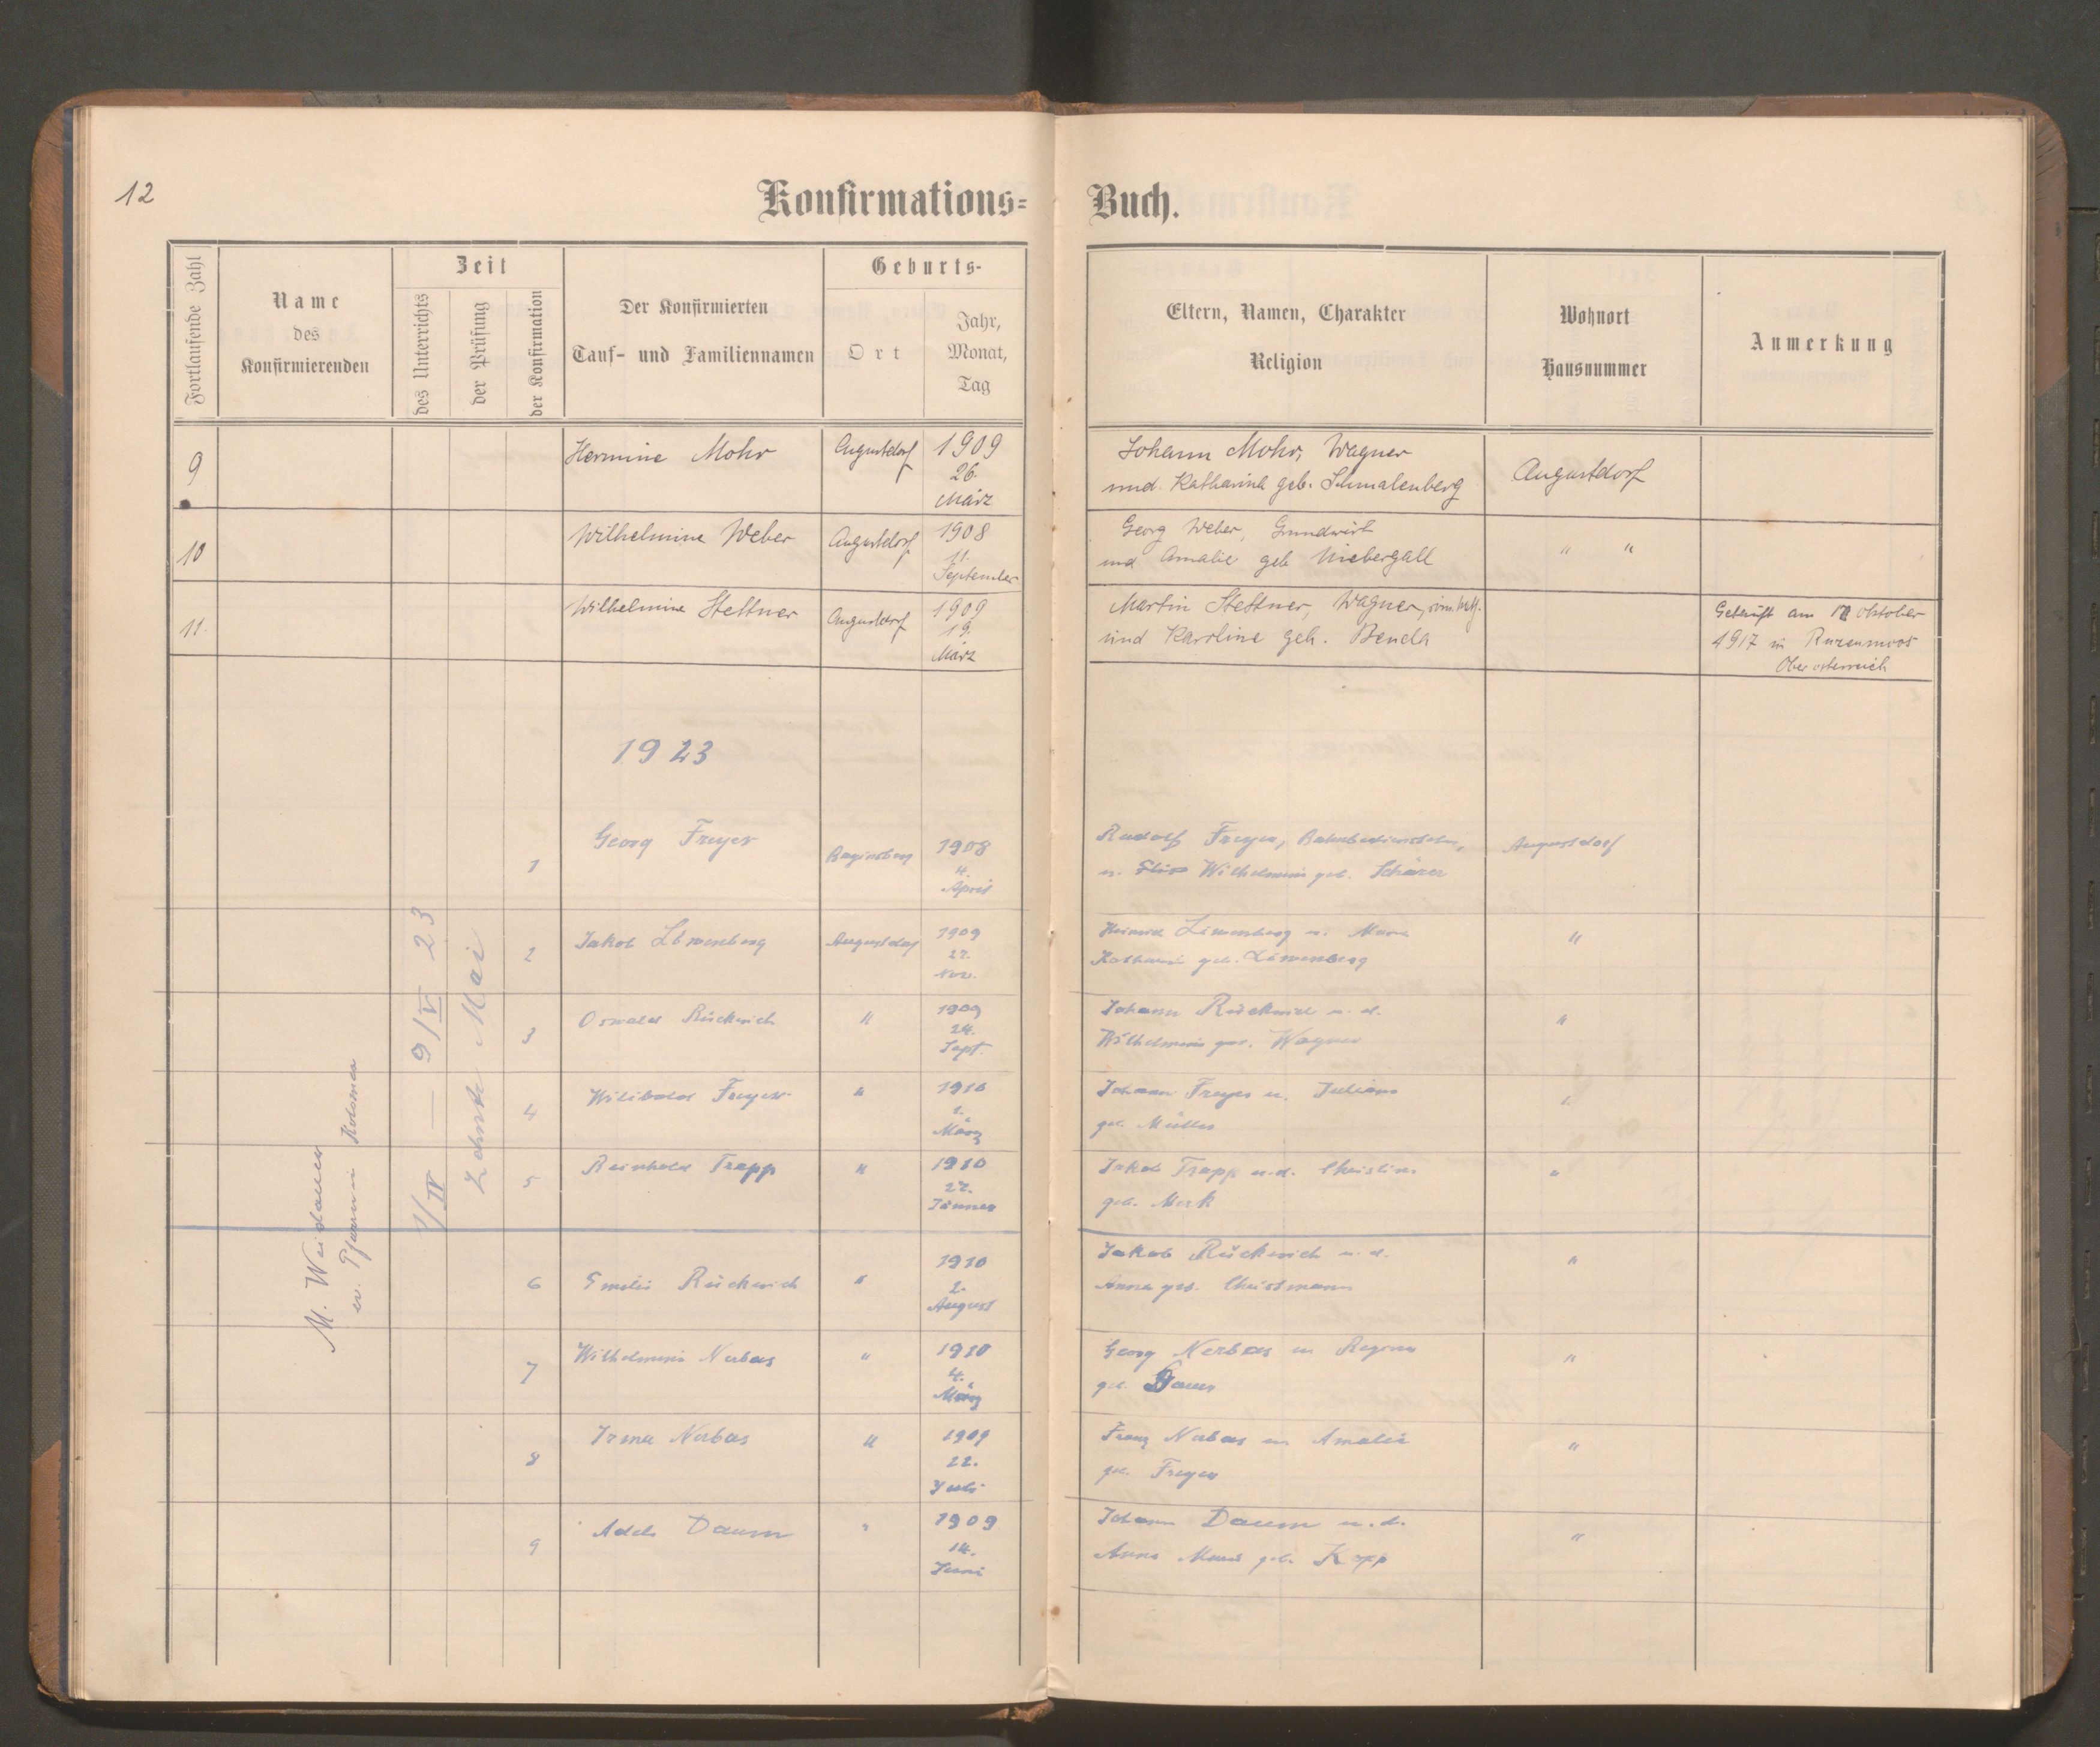 12
Konfirmations= Buch.
Fortlaufende Zahl
Name
des
Konfirmierenden
Zeit
des Unterrichts
der Prüfung
der Konfirmation
Der Konfirmierten
Tauf- und Familiennamen
Geburts-
Ort
Jahr,
Monat,
Tag
Eltern, Namen, Charakter
Religion
Wohnort
Hausnummer
Anmerkung
9 Hermine Mohr Augustdorf 1909
26.
März
Johann Mohr, Wagner
und Katharina geb. Schmalenberg
Augustdorf
10 Wilhelmine Weber Augustdorf 1908
11.
September
Georg Weber, Grundwirt
und Amalie geb Niebergall
" "
11. Wilhelmine Stettner Augustdorf 1909
19.
März
Martin Stettner, Wagner,
und Karoline geb. Benda
Getauft am Oktober
1917 in Rutzenmoos
Oberösterreich
1923
M. Weidauer
ev. Pfarrer in Kolomea
1/IV — 9/V 23
Zehnte Mai
1 Georg Freyer Baginsberg 1908
4.
April
Rudolf Freyer, Bahnbediensteter,
u. Wilhelmine geb. Schärer
Augustdorf
2 Jakob Löwenberg Augustdorf 1909
22.
Nov.
Heinrich Löwenberg u. Maria
Katharina geb. Löwenberg
"
3 Oswald Rückwich " 1909
24.
Sept.
Johann Rückwich u. d.
Wilhelmine geb. Wagner
"
4 Wilibald Freyer " 1910
1.
März
Johann Freyer u. Juliana
geb. Müller
"
5 Reinhold Trapp " 1910
22.
Jänner
Jakob Trapp u. d. Christine
geb. Merk
"
6 Emilie Rückwich " 1910
2.
August
Jakob Rückwich u. d.
Anna geb. Christmann
"
7 Wilhelmine Nerbas " 1910
4.
März
Georg Nerbas u. Regina
geb.
"
8 Irma Nerbas " 1909
22.
Juli
Franz Nerbas u. Amalie
geb. Freyer
"
9 Adele Daum " 1909
14.
Juni
Johann Daum u. d.
Anna Maria geb. Kopp
"